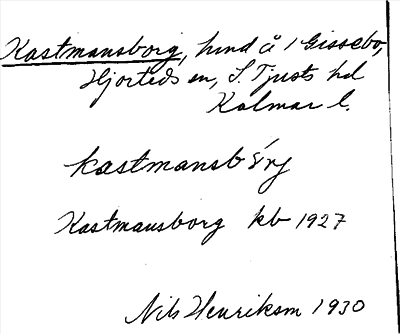 Kastmansborg, hmd å 1 Gissebo,
Hjorteds sn, S. Tjusts hd
Kalmar l.
kastmansbǒrj
Kastmansborg kb 1927
Nils Henriksm 1930